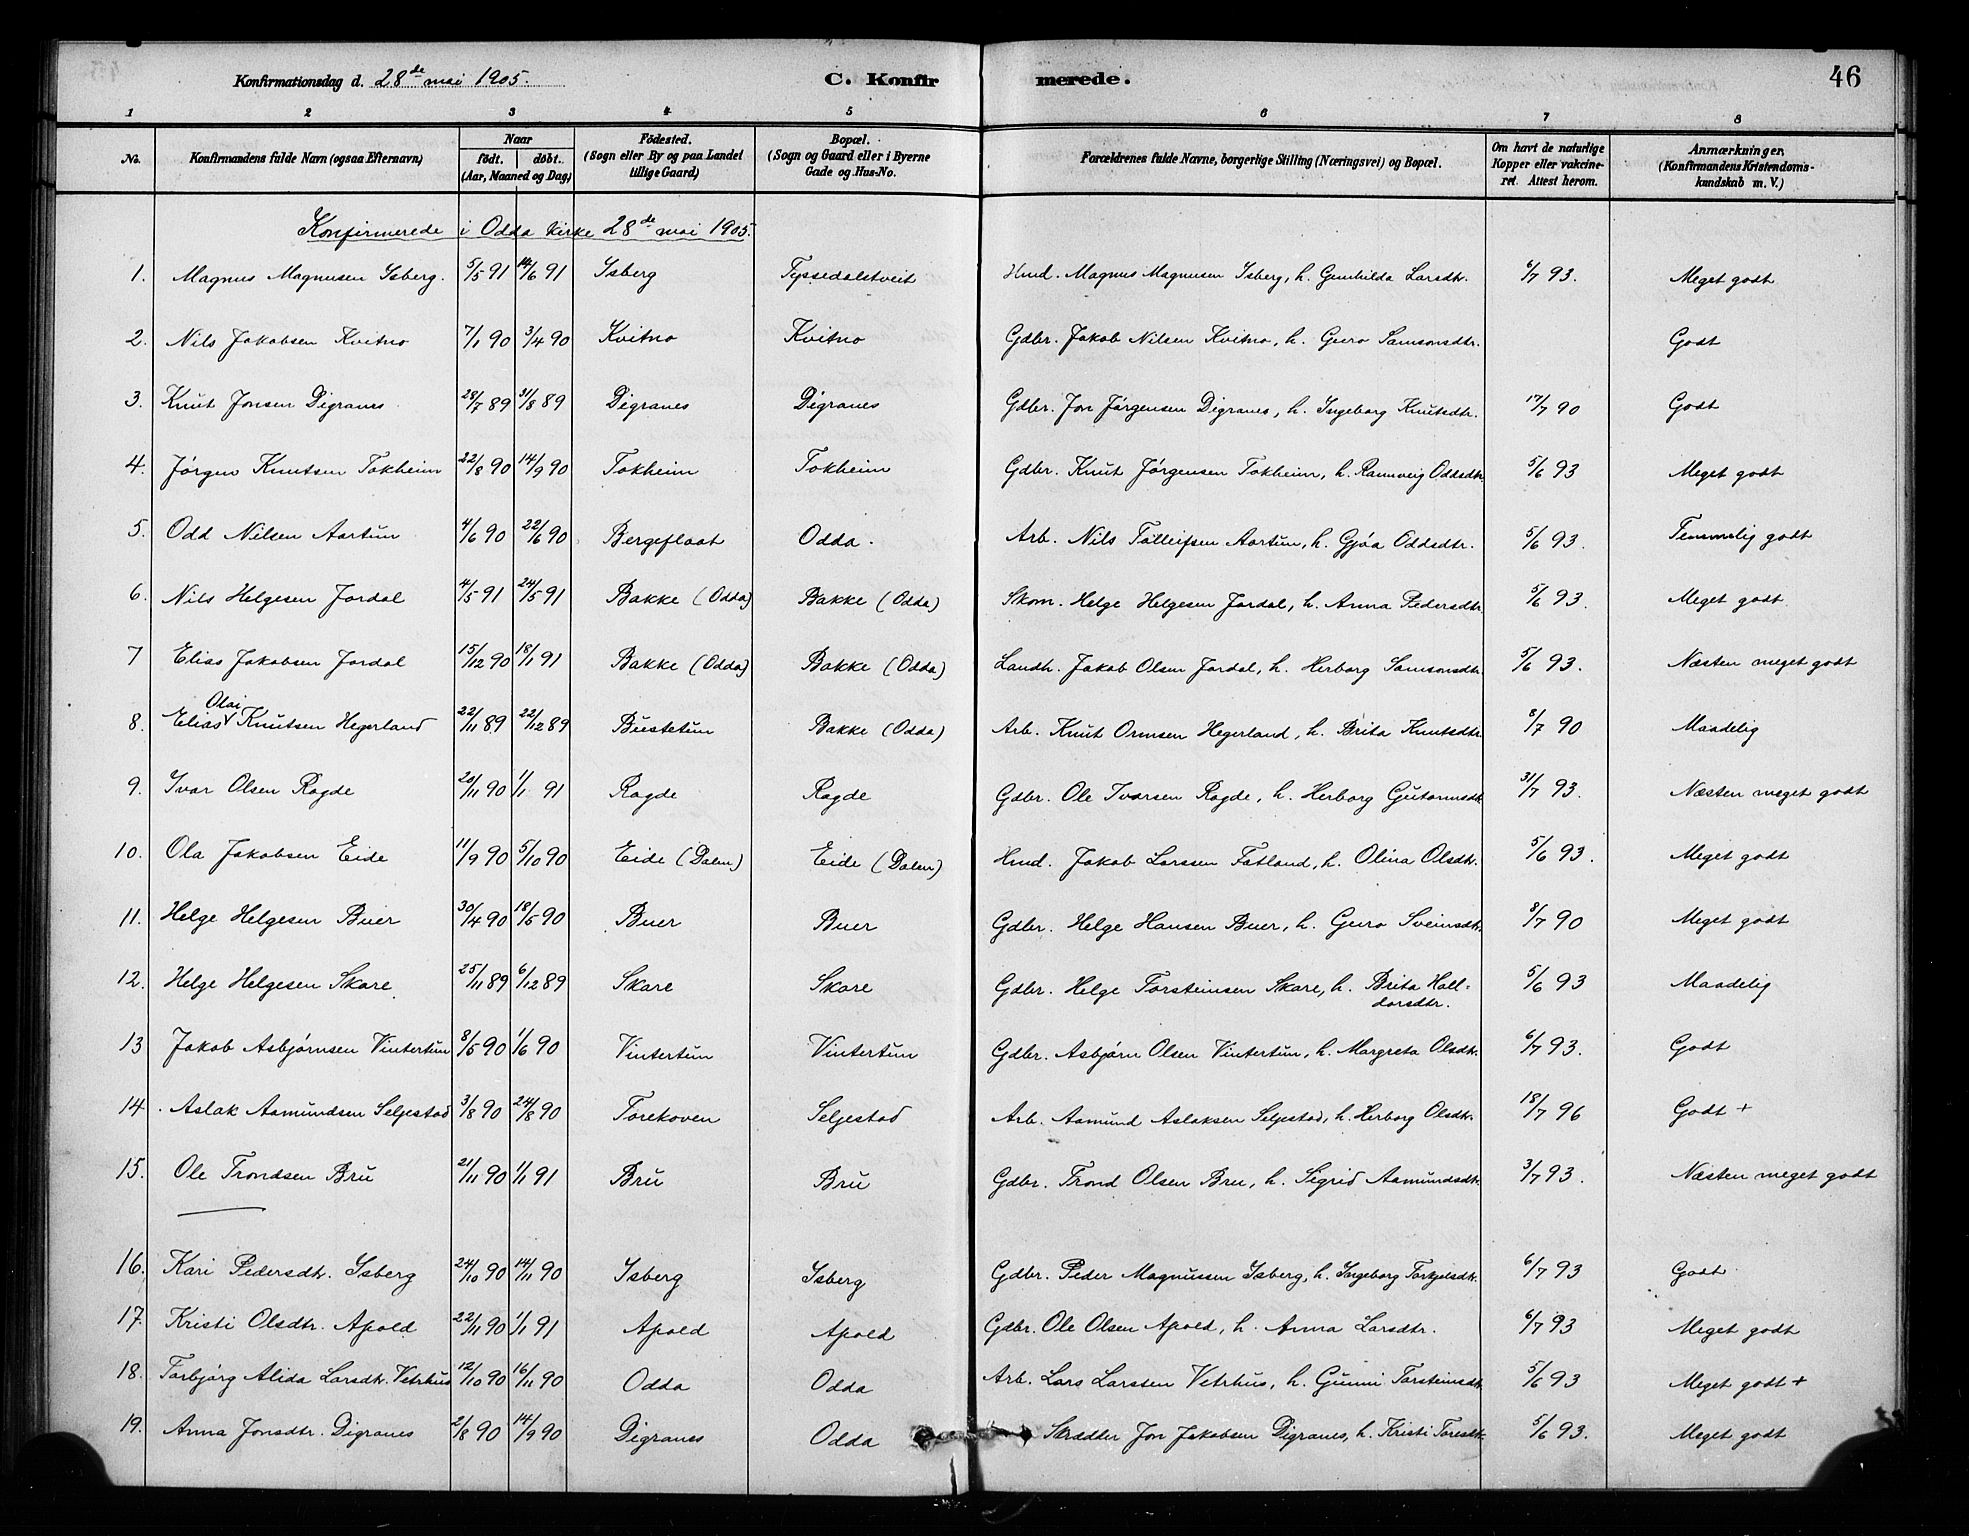 46
Konfirmationsdag d. 28de mai 1905. C. Konfirmerede.
1 2 3 4 5 6 7 8
No. Konfirmandens fulde Navn (ogsaa Efternavn) Naar født. døbt. (Aar, Maaned og Dag) Fødested. (Sogn eller By og paa Landet tillige Gaard) Bopæl. (Sogn og Gaard eller i Byerne Gade og Hus-No. Forældrenes fulde Navne, borgerlige Stilling (Næringsvei) og Bopæl. Om havt de naturlige Kopper eller vakcineret. Attest herom. Anmærkninger, (Konfirmandens Kristendomskundskab m. V.)
Konfirmerede i Odda kirke 28de mai 1905.
1. Magnus Magnusen Isberg. 5/5 91 14/6 91 Isberg Tyssedalstveit Hmd. Magnus Magnusen Isberg, h. Gunhilda Larsdtr. 6/7 93. Meget godt
2. Nils Jakobsen Kvitno 7/1 90 3/4 90 Kvitno Kvitno Gdbr. Jakob Nilsen Kvitno, h. Guro Samsonsdtr. Godt
3. Knut Jonsen Digranes 28/7 89 31/8 89 Digranes Digranes Gdbr. Jon Jørgensen Digranes, h. Ingeborg Knutsdtr. 17/7 90 Godt
4. Jørgen Knutsen Tokheim 22/8 90 14/9 90 Tokheim Tokheim Gdbr. Knut Jørgensen Tokheim, h. Rannveig Oddsdtr 5/6 93 Meget godt
5. Odd Nilsen Aartun 4/6 90 22/6 90 Bergeflaat Odda. Arb. Nils Tolleifsen Aartun, h. Gjøa Oddsdtr. 5/6 93. Temmelig godt
6. Nils Helgesen Jordal 4/5 91 24/5 91 Bakke (Odda) Bakke (Odda) Skom. Helge Helgesen Jordal, h. Anna Pedersdtr. 5/6 93. Meget godt
7 Elias Jakobsen Jordal 15/12 90 18/1 91 Bakke (Odda) Bakke (Odda) Landh. Jakob Olsen Jordal, h. Herborg Samsonsdtr. 5/6 93. Næsten meget godt
Olai
8. Elias Knutsen Hegerland 22/11 89 22/12 89 Bustetun Bakke (Odda) Arb. Knut Ormsen Hegerland, h. Brita Knutsdtr 8/7 90 Maadelig
9. Ivar Olsen Ragde 20/11 90 1/1 91 Ragde Ragde Gdbr. Ole Ivarsen Ragde, h. Herborg Gutormsdt 31/7 93. Næsten meget godt
10. Ola Jakobsen Eide 11/9 90 5/10 90 Eide (Dalen) Eide (Dalen) Hmd. Jakob Larsen Fatland, h. Olina Olsdtr. 5/6 93. Meget godt
11. Helge Helgesen Buer 30/4 90 18/5 90 Buer Buer Gdbr. Helge Hansen Buer, h. Guro Sveinsdtr. 8/7 90 Meget godt
12. Helge Helgesen Skare 25/11 89 6/12 89 Skare Skare Gdbr. Helge Torsteinsen Skare, h. Brita Hall- 5/6 93 Maadelig
dorsdtr.
13 Jakob Asbjørnsen Vintertun 8/5 90 1/6 90 Vintertun Vintertun Gdbr. Asbjørn Olsen Vintertun, h. Margreta Olsdtr. 6/7 93. Godt
14. Aslak Aamundsen Seljestad 3/8 90 24/8 90 Torekoven Seljestad Arb. Aamund Aslaksen Seljestad, h. Herborg Olsdtr. 18/7 96 Godt +
15. Ole Trondsen Bru 21/11 90 1/1 91 Bru Bru Gdbr. Trond Olsen Bru, h. Sigrid Aamundsdtr. 3/7 93. Næsten meget godt
16. Kari Pedersdtr. Isberg 24/10 90 14/11 90 Isberg Isberg Gdbr. Peder Magnussen Isberg, h. Ingeborg Torkjelsdtr. 6/7 93 Godt
17. Kristi Olsdtr. Apold 22/11 90 1/1 91 Apold Apold Gdbr. Ole Olsen Apold, h. Anna Larsdtr. 6/7 93 Meget godt
18. Torbjørg Alida Larsdtr. Vetrhus 12/10 90 16/11 90 Odda Odda Arb. Lars Larsen Vetrhus, h. Gunni Torsteinsdtr 5/6 93 Meget godt +
19. Anna Jonsdtr. Digranes 2/8 90 14/9 90 Digranes Odda Skrædder Jon Jakobsen Digranes, h. Kristi Toresdtr. 5/6 93. Meget godt